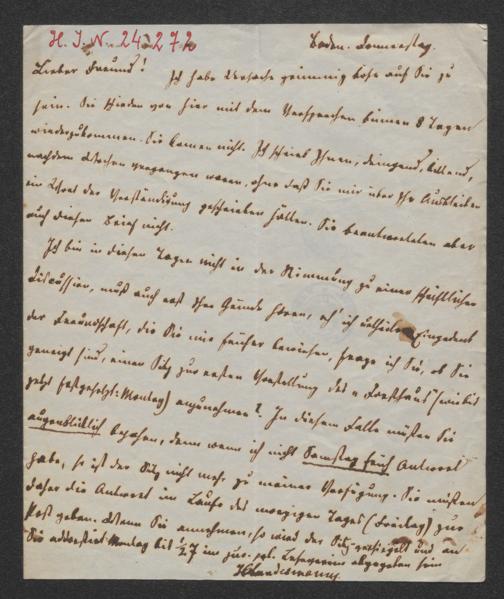 H. I. N. 24272
Baden. Donnerstag.
Lieber Freund!
Ich habe Ursache grimmig böse auf Sie zu
sein. Sie schieden von hier mit dem Versprechen binnen 8 Tagen
wiederzukommen. Sie kamen nicht. Ich schrieb Ihnen, dringend, bittend,
nachdem Wochen vergangen waren, ohne daß Sie mir über Ihr Ausbleiben
ein Wort der Verständigung geschrieben hätten. Sie beantworteten aber
auch diesen Brief nicht.
Ich bin in diesen Tagen nicht in der Stimmung zu einer schriftlichen
Discussion, muß auch erst Ihre Gründe hören, eh' ich urtheile. Eingedenk
der Freundschaft, die Sie mir früher bewiesen, frage ich Sie, ob Sie
geneigt sind, einen Sitz zur ersten Vorstellung des "Forsthaus"
jetzt festgesetzt: Montag) anzunehmen? In diesem Falle müßten Sie
augenblicklich bejahen, denn wenn ich nicht Samstag früh Antwort
habe, so ist der Sitz nicht mehr zu meiner Verfügung. Sie müßten
daher die Antwort im Laufe des morgigen Tages (Freitag) zur
Post geben. Wenn Sie annehmen, so wird der Sitz versiegelt und an
Sie adressirt Montag bis ½7 im jur. pol. Leseverein abgegeben sein
HLandesmann